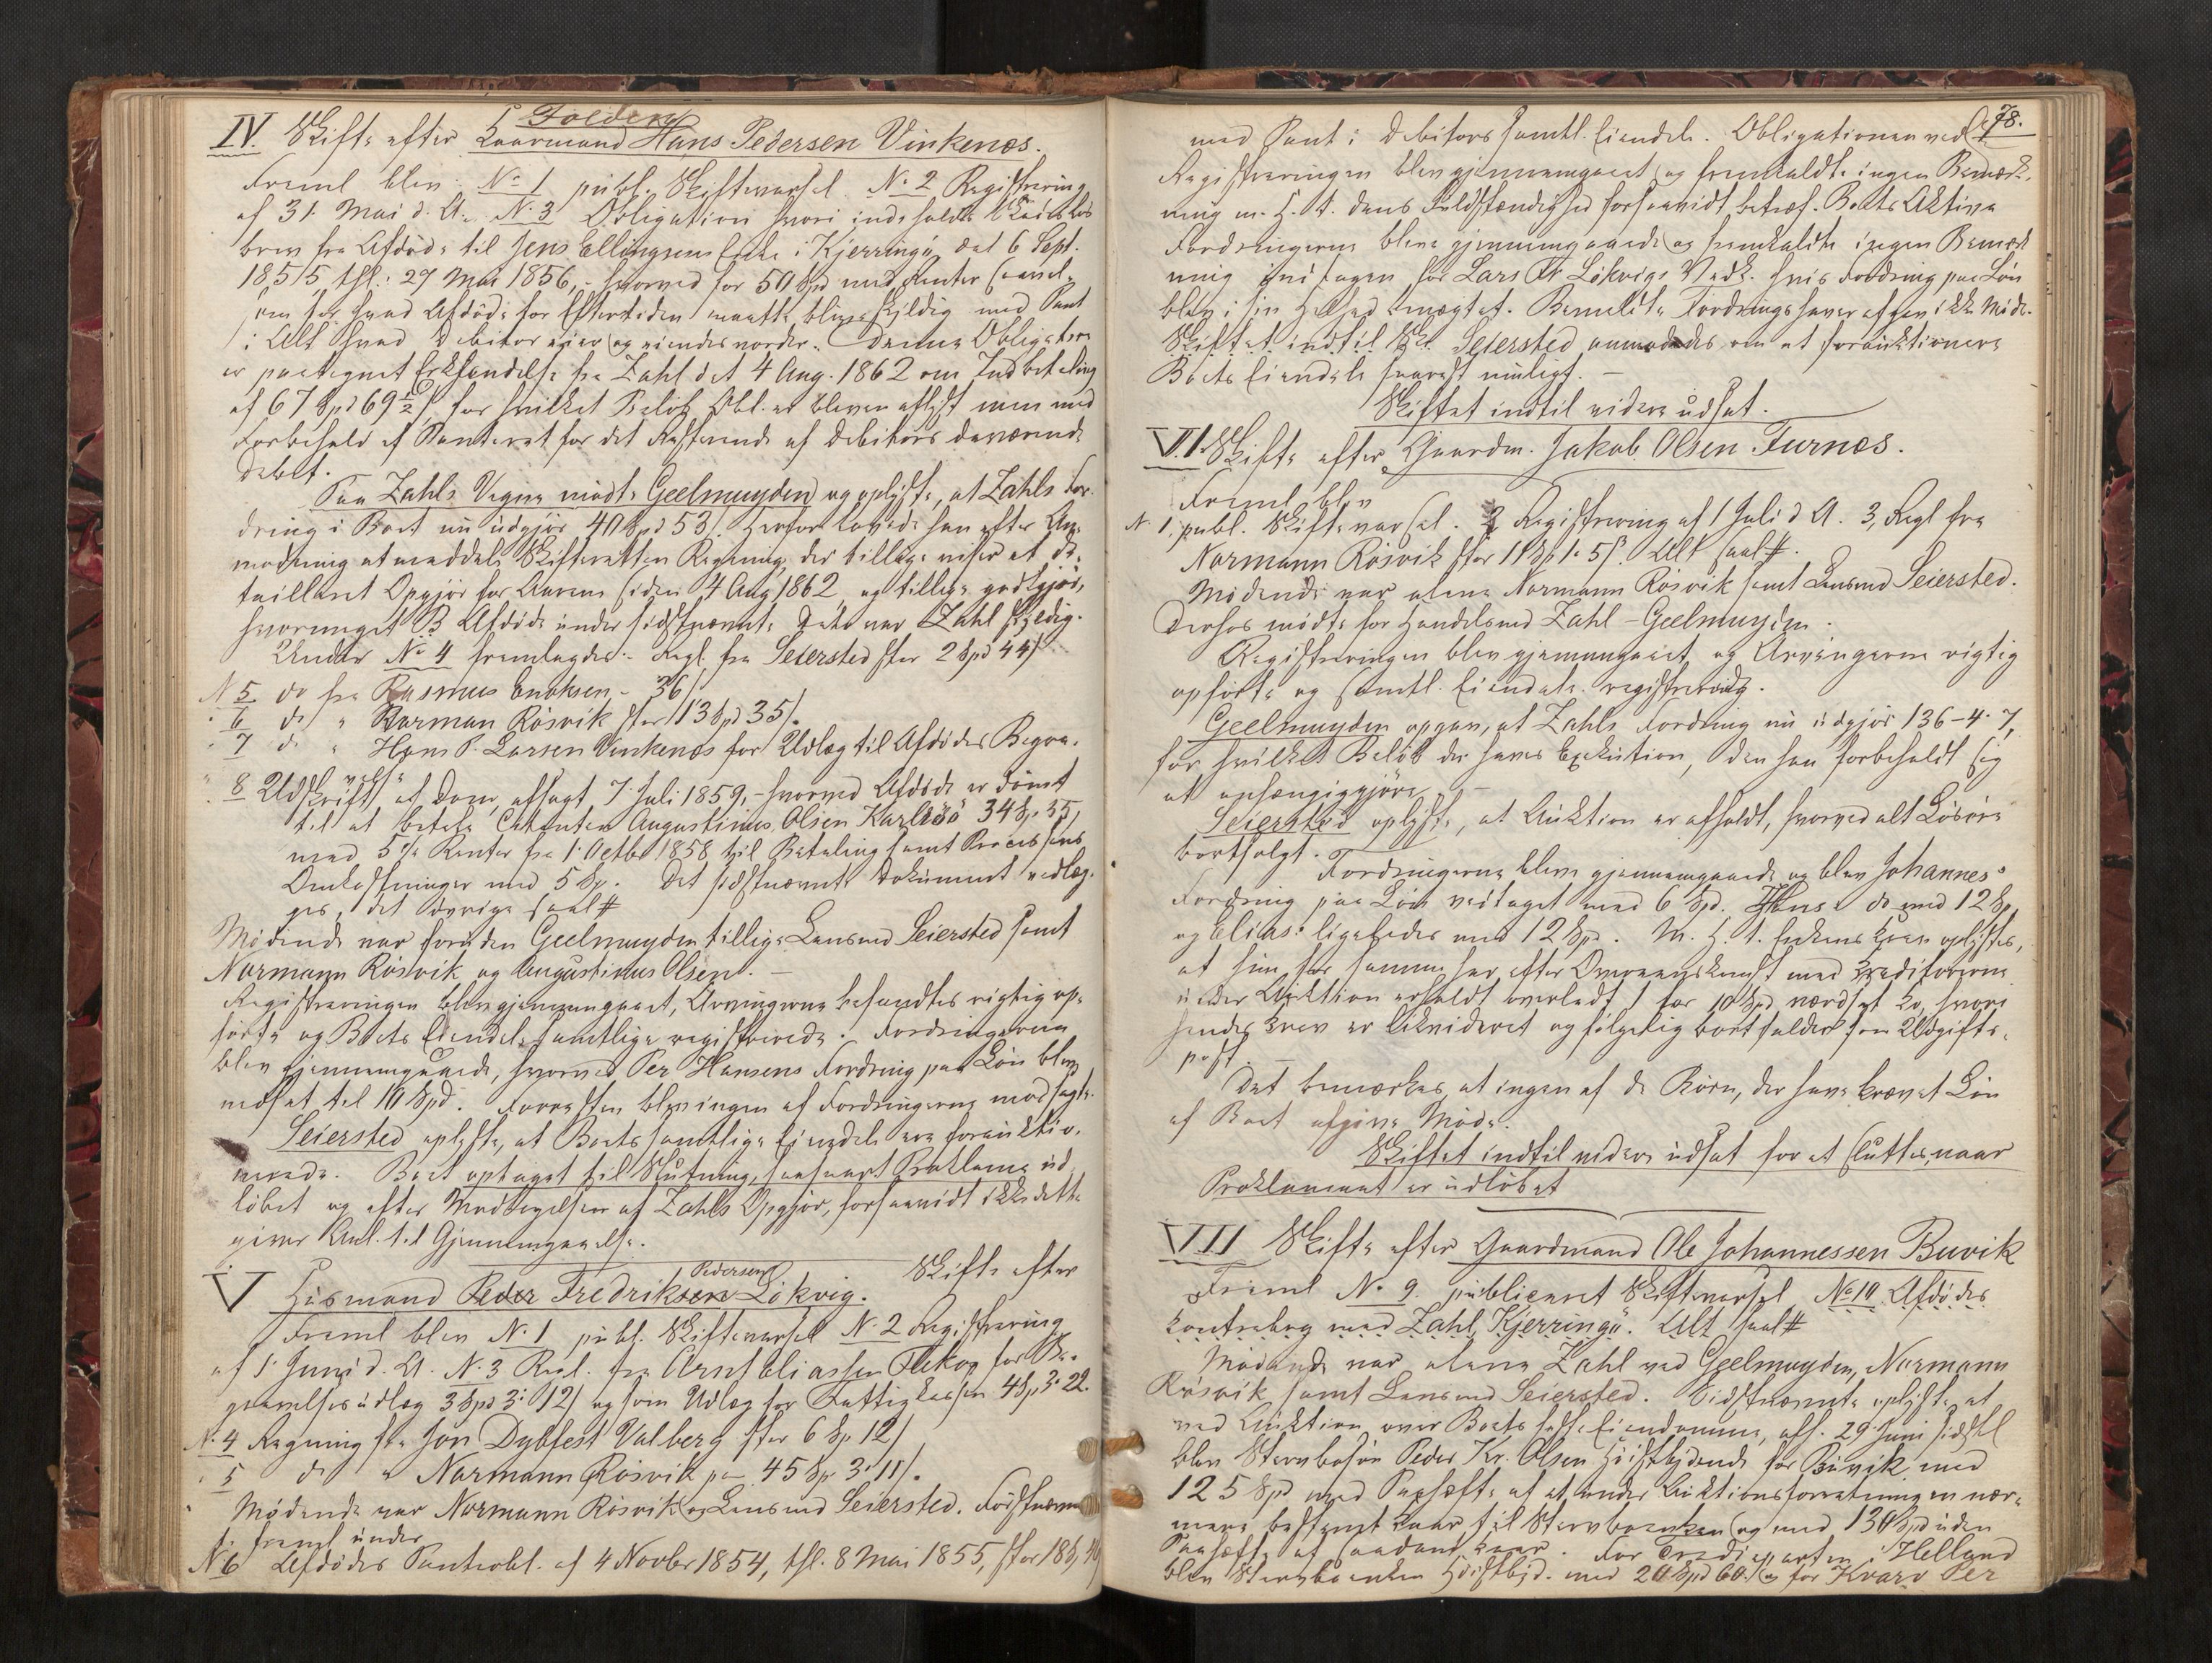 Folden
IV. Skifte efter Kaarmand Hans Pedersen Vinkenæs.
Freml blev No 1 publ. Skiftevarsel. No 2 Registrering
af 31 Mai d. A. No 3 Obligation hvori indeholdt
brev fra Afdøde til Jens Ellingsens Enke i Kjerringø, dat 6 Sept.
1855, thl. 27 Mai 1856, hvorved for 50 Spd med Renter saavel
som for hvad Afdøde for Eftertiden maatte blive skyldig med Pant
i Alt hvad Debitor eier og eiendes vorder. Denne Obligation
er paategnet Erkjendelse fra Zahl dat 4 Aug. 1862 om Indbetaling
af 67 Spd 69½ β for hvilket Beløb Obl. er bleven aflyst men med
Forbehold af Panteret for det Resterende af Debitors daværende
Debet.
Paa Zahls Vegne mødte Geelmuyden og oplyste, at Zahls For-
dring i Boet nu udgjør 40 Spd 53 β. Herfor lovede han efter An-
modning at meddele Skifteretten Regning, der tillige viser et de-
tailleret Opgjør for Aarene siden 4 Aug 1862, og tillige godtgjør,
hvormeget Afdøde under sidstnævnte Dato var Zahl skyldig.
Under No 4 fremlagdes Regl. fra Seiersted stor 2 Spd 44 β
N 5 do fra Rasmus Enoksen - 36 β
" 6 do " Norman Røsvik stor 13 Spd 35 β.
" 7 do " Hans P. Larsen Vinkenæs for Udlæg til Afdødes Begra-
velse
" 8 Udskrift af Dom, afsagt 7 Juli 1859, hvorved Afdøde er dømt
til at betale Citanten Augustinus Olsen Karlsöö 34 Sp. 35,
med 5% Renter fra 1 Octbr 1858 til Betaling samt Processens
Omkostninger med 5 Sp. Det sidstnævnte Dokument vedlæg-
ges, det øvrige saal #
Mødende var foruden Geelmuyden tillige Lensmd Seiersted samt
Normann Røsvik og Augustinus Olsen. —
Registreringen blev gjennemgaaet, Arvingerne befandtes rigtig op-
førte og Boets Eiendele samtlige registrerede. Fordringerne
blev gjennemgaaede, hvorved Per Hansens Fordring paa Løn blev
nedsat til 10 Spd. Forresten blev ingen af Fordringerne modsagt.
Seiersted oplyste, at Boets samtlige Eiendele ere forauktio-
nerede. Boet optaget til Slutning, saasnart Proklama ud-
løbet og efter Modtagelsen af Zahls Opgjør, forsaavidt ikke dette
giver Anl. til Gjennemgaaelse.
V Skifte efter
Husmand Peder Fredriksen Pedersen Løkvig.
Freml blev No 1 publ. Skiftevarsel N. 2 Registrering
af 1 Juni d. A. N. 3 Regl. fra Arnt Eliassen for Be-
gravelsesudlæg 3 Spd 3. 12 β og som Udlæg for Fattigkassen 4 Sp 3. 22.
N. 4 Regning fra Jon Dybfest Valberg stor 6 Sp. 12 β
" 5 do " Normann Røsvik paa 45 Sp 3. 11 β.
Mødende var Normann Røsvik og Lensmd Seiersted. Førstnævn-
te freml under
N 6 Afdødes Panteobl. af 4 Novbr 1854, thl. 8 Mai 1855, stor
78.
med Pant i Debitors samtl. Eiendele. Obligationen vedl.
Registreringen blev gjennemgaaet og fremkaldte ingen Bemærk-
ning m. H. t. dens Fuldstændighed forsaavidt betræf. Boets Aktiva
Fordringerne bleve gjennemgaaede og fremkaldte ingen Bemærk
ning undtagen for Lars Fr Løkvigs Vedk. hvis Fordring paa Løn
blev i sin Helhed benægtet. Bemeldte Fordringshaver afgav ikke Møde.
Skiftet indtil Seiersted anmodedes om at forauktionere
Boets Eiendele snarest muligt. —
Skiftet indtil videre udsat.
VI. Skifte efter Gaardm. Jakob Olsen Furnes.
Freml. blev
N. 1. publ. Skiftevarsel. 2 Registrering af 1 Juli d A. 3, Regl fra
Normann Røsvik stor 11 Sp 1. 5 β. Alt saal #.
Mødende var alene Normann Røsvik samt Lensmd Seiersted.
Derhos mødte for Handelsmd Zahl - Geelmuyden.
Registreringen blev gjennemgaaet og Arvingerne rigtig
opførte og samtl. Eiendele registrerede.
Geelmuyden opgav, at Zahls Fordring nu udgjør 136-4-7,
for hvilket Beløb der haves Exekution, den han forbeholdt sig
at anhængiggjøre. —
Seiersted oplyste, at Auktion er afholdt, hvorved alt Løsøre
bortsolgt.
Fordringerne bleve gjennemgaaede og blev Johannes's
Fordring paa Løn vedtaget med 6 Spd. Hans's do med 12 Sp.
og Elias's ligeledes med 12 Spd. M. H. t. Enkens Krav oplystes,
at hun har samme har efter Overenskomst med Kreditorerne
under Auktion erholdt overladt 1 for 10 Spd værdsat Ko, hvori
hendes Krav er likvideret og følgelig bortfalder som Udgifts-
post. —
Det bemærkes, at ingen af de Børn, der have krævet Løn
af Boet afgive Møde.
Skiftet indtil videre udsat for at sluttes, naar
Proklamaet er udløbet
VII Skifte efter Gaardmand Ole Johannessen Buvik
Freml No 9. publiceret Skiftevarsel No 10 Afdødes
Kontrabog med Zahl, Kjerringø. Alt saal #
Mødende var alene Zahl ved Geelmuyden, Normann
Røsvik samt Lensmd Seiersted. Sidstnævnte oplyste, at
ved Auktion over Boets faste Eiendomme, afh. 29 Juni sidstl
blev Stervbosøn Peder Kr. Olsen Høistbydende for Buvik med
125 Spd med Paahæfte af et under Auktionsforretningen nær-
mere bestemt Kaar til Stervboenken og med 130 Spd uden
Paahæfte af saadant Kaar. For Trediparten i Helland
blev Stervboenken Høistbyd. med 20 Spd 60 β og for Kvarv Per